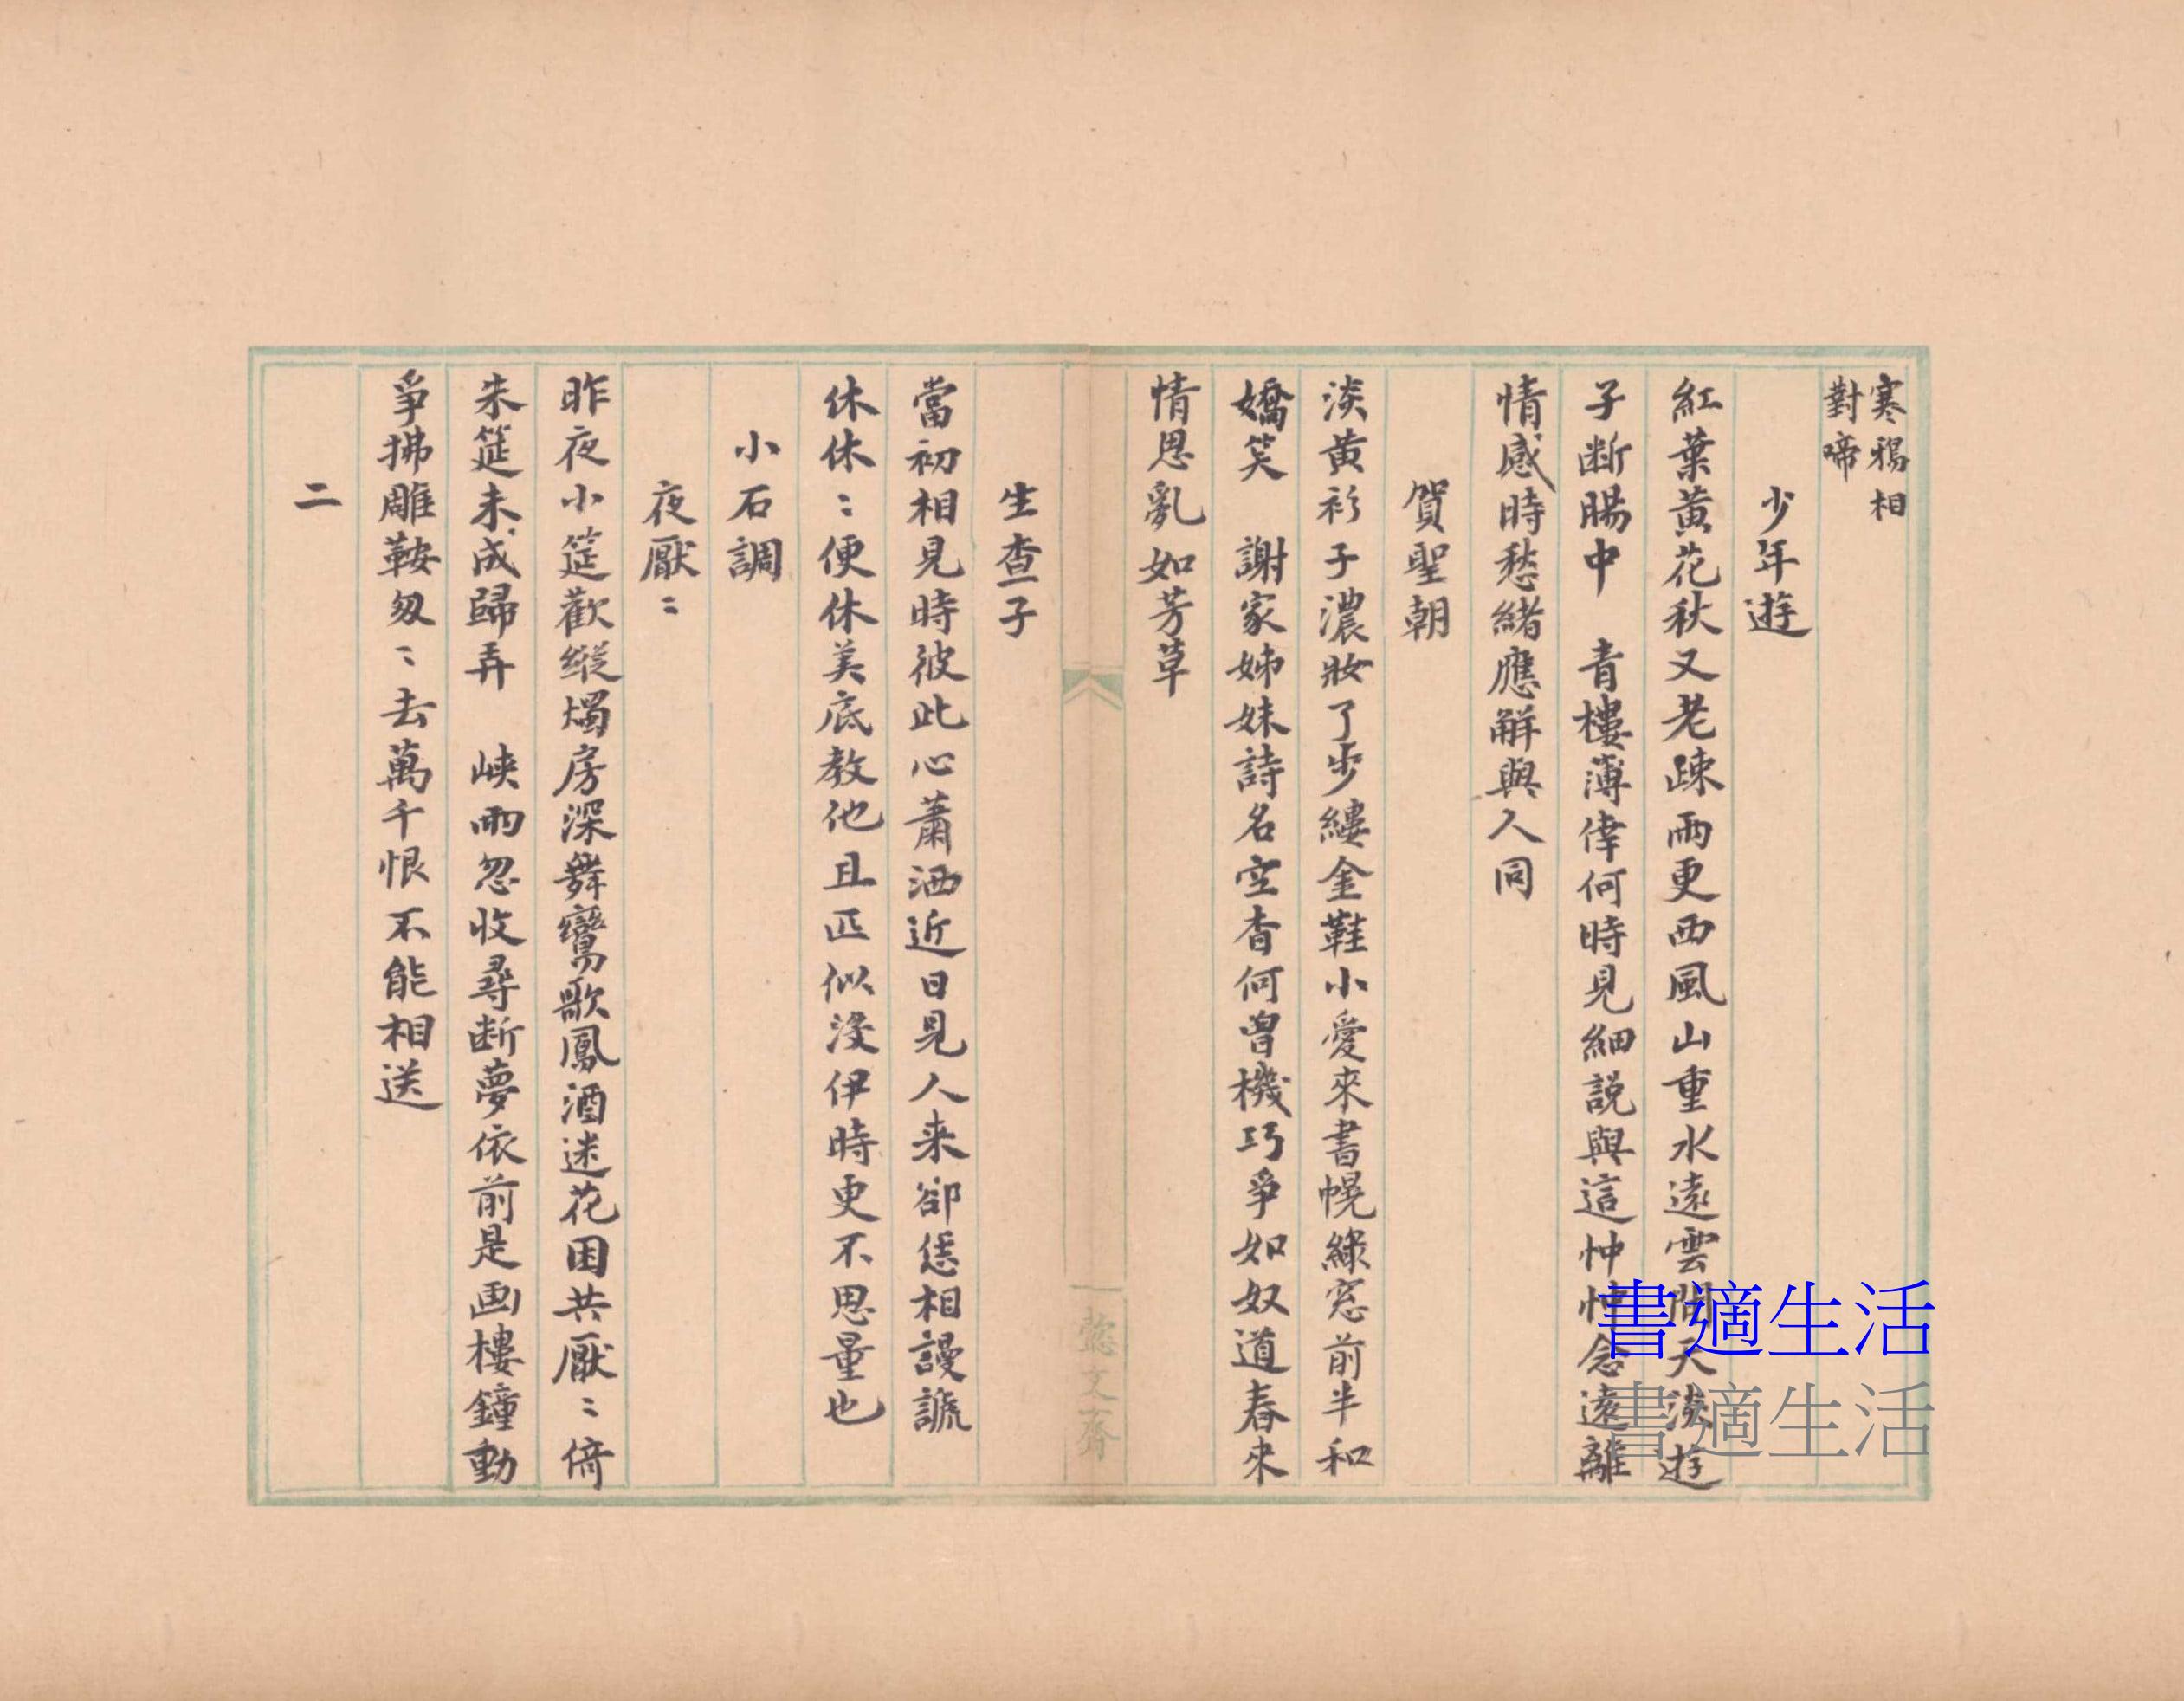 寒鴉相
對啼
少年遊
紅葉黃花秋又老疎雨更西風山重水遠雲閒天淡遊
子斷腸中　青樓薄倖何時見細說與這忡忡念遠離
情感時愁緒應解與人同
賀聖朝
淡黃衫子濃妝了步縷金鞋小愛來書幌綠窓前半和
嬌笑　謝家姊妹詩名空杳何曾機巧爭如奴道春來
情思亂如芳草
懿文齋
生查子
當初相見時彼此心蕭洒近日見人来卻恁相謾諕
休休〻便休休美底教他且匹似沒伊時更不思量也
小石調
夜厭〻
昨夜小筵歡縱燭房深舞鸞歌鳳酒迷花困共厭〻倚
朱筵未成歸弄　峽雨忽收尋斷夢依前是画樓鐘動
爭拂雕鞍匆〻去萬千恨不能相送
二
書適生活
書適生活